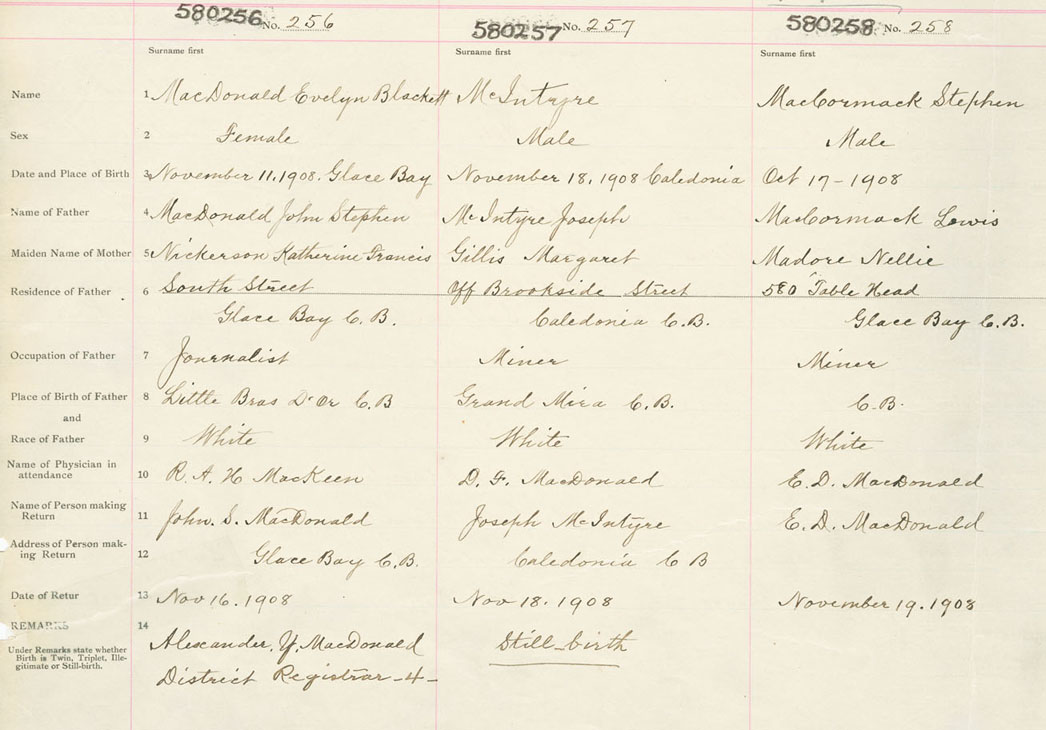 580256 No. 256 580257 No. 257 580258 No. 258
Surname first Surname first Surname first
Name 1 MacDonald Evelyn Blackett McIntyre MacCormack Stephen
Sex 2 Female Male Male
Date and Place of Birth 3 November 11, 1908. Glace Bay November 18, 1908 Caledonia Oct 17 - 1908
Name of Father 4 MacDonald John Stephen McIntyre Joseph MacCormack Lewis
Maiden Name of Mother 5 Nickerson Katherine Francis Gillis Margaret Madore Nellie
Residence of Father 6 South Street Off Brookside Street 580 Table Head
Glace Bay C.B. Caledonia C.B. Glace Bay C.B.
Occupation of Father 7 Journalist Miner Miner
Place of Birth of Father 8 Little Bras D'Or C.B Grand Mira C.B. C.B.
and
Race of Father 9 White White White
Name of Physician in
attendance 10 R. A. H MacKeen D. F. MacDonald E. D. MacDonald
Name of Person making
Return 11 John. S. MacDonald Joseph McIntyre E. D. MacDonald
Address of Person mak-
ing Return 12 Glace Bay C.B. Caledonia C B
Date of Retur 13 Nov 16. 1908 Nov 18. 1908 November 19. 1908
REMARKS 14
Under Remarks state whether
Birth is Twin, Triplet, Ille-
gitimate or Still-birth.
Alexander. Y. MacDonald Still-birth
District Registrar -4-